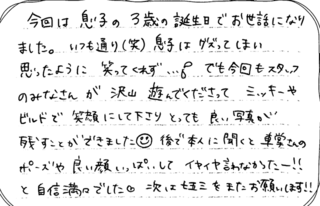 今回は息子の3歳の誕生日でお世話になり
ました。いつも通り(笑)息子はグズってしまい
思ったように笑ってくれず…。でも今回もスタッフ
のみなさんが沢山遊んでくださって ミッキーや
ビルドで笑顔にして下さり とっても良い写真が
残すことができました 後で本人に聞くと 車掌さんの
ポーズや良い顔いっぱいして イヤイヤ言わなかったー!!
と自信満々でした 次は七五三をまたお願いします!!